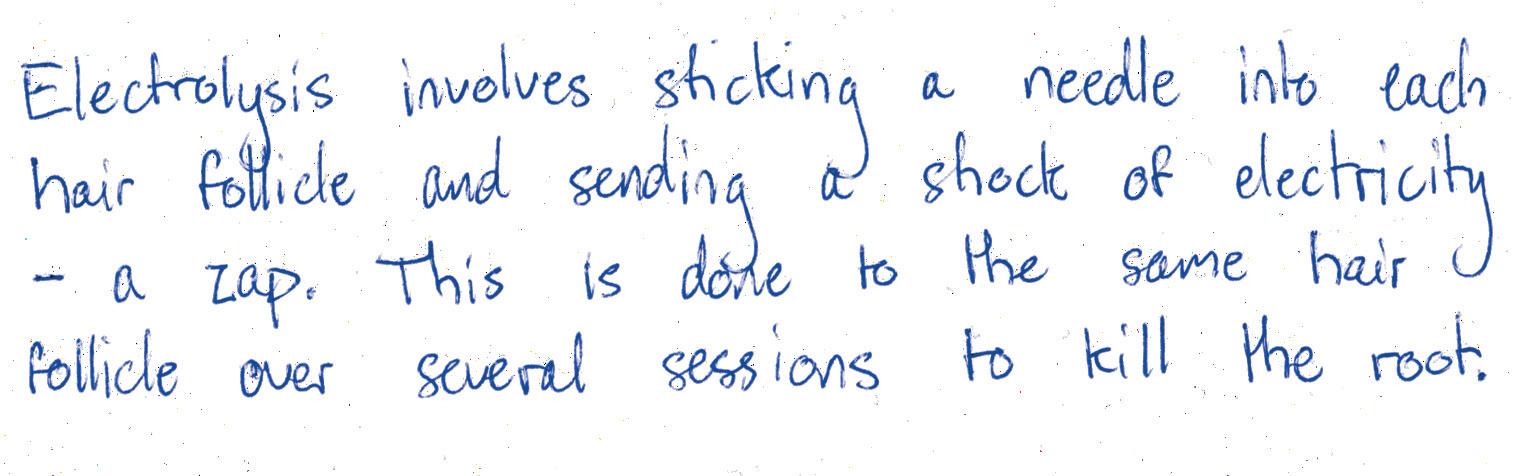 Electrolysis involves sticking a needle into each
hair follicle and sending a shock of electricity
- a zap. This is done to the same hair
follicle over several sessions to kill the root.